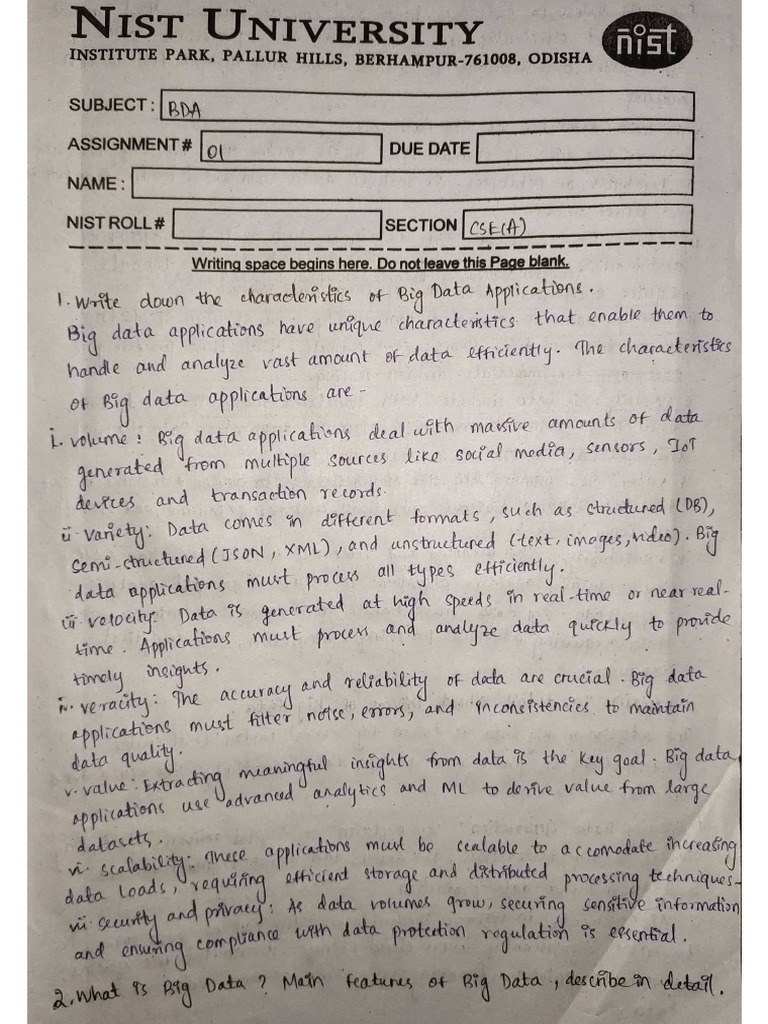 NIST UNIVERSITY
nist
INSTITUTE PARK, PALLUR HILLS, BERHAMPUR-761008, ODISHA
SUBJECT : BDA
ASSIGNMENT # 01 DUE DATE
NAME :
NIST ROLL # SECTION CSE(A)
Writing space begins here. Do not leave this Page blank.
1. Write down the characteristics of Big Data Applications.
Big data applications have unique characteristics that enable them to
handle and analyze vast amount of data efficiently. The characteristics
of Big data applications are -
i. volume : Big data applications deal with massive amounts of data
generated from multiple sources like social media, sensors, IoT
devices and transaction records.
ii. variety: Data comes in different formats, such as structured (DB),
semi-structured (JSON, XML), and unstructured (text, images, video). Big
data applications must process all types efficiently.
iii. velocity: Data is generated at high speeds in real-time or near real-
time. Applications must process and analyze data quickly to provide
timely insights.
iv. veracity: The accuracy and reliability of data are crucial. Big data
applications must filter noise, errors, and inconsistencies to maintain
data quality.
v. value: Extracting meaningful insights from data is the key goal. Big data
applications use advanced analytics and ML to derive value from large
datasets.
vi. scalability: These applications must be scalable to accomodate increasing
data loads, requiring efficient storage and distributed processing techniques.
vii. security and privacy: As data volumes grow, securing sensitive information
and ensuring compliance with data protection regulation is essential.
2. What is Big Data ? Main features of Big Data, describe in detail.